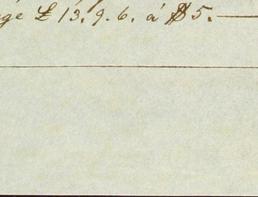 ge £ 13.9.6. á $5.—